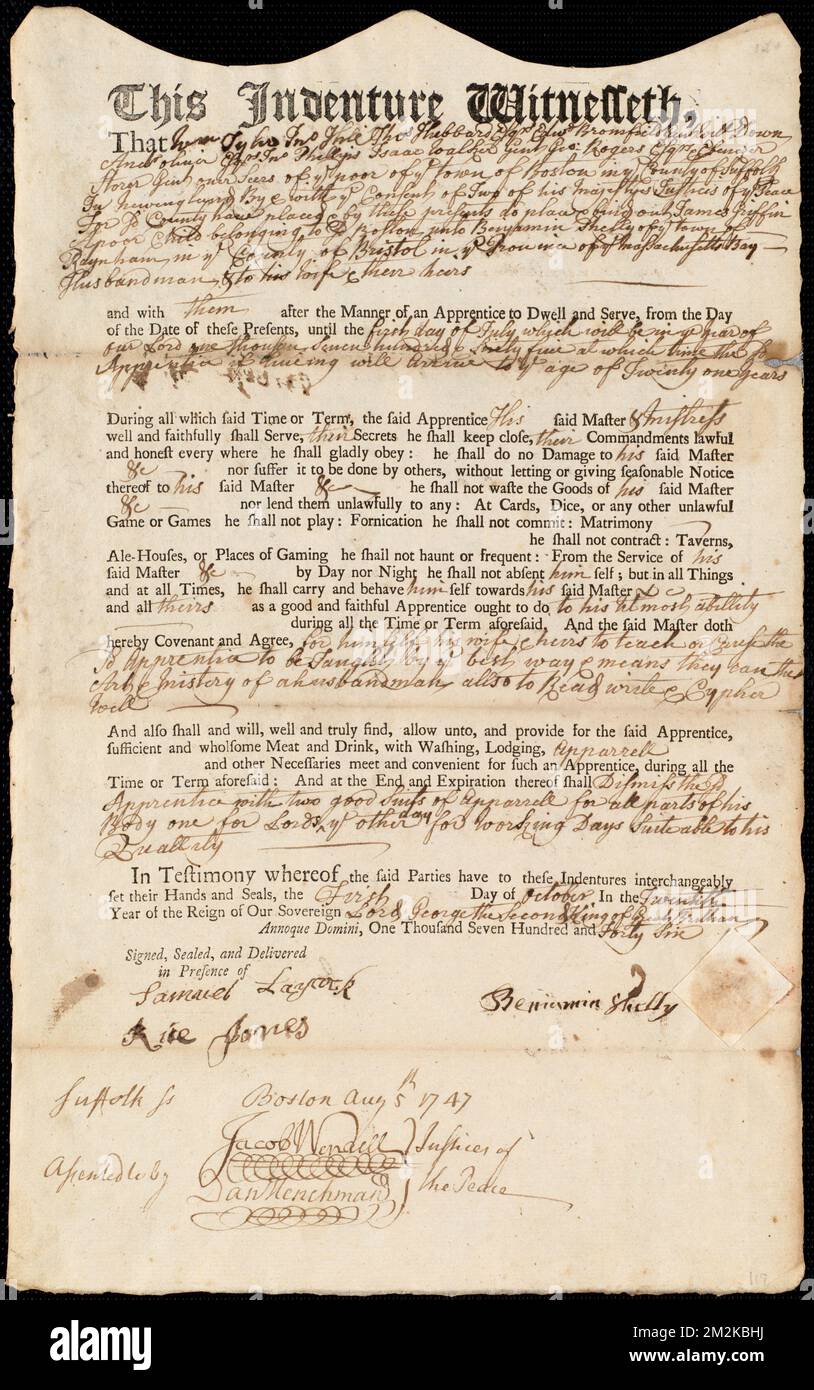 This Indenture Witnesseth,
That Wm Tyler Jno Hill Thos Hubbard Esqrs Edwd Bromfield
Andw Oliver Esqrs Jno Phillips Isaac Walker Gent Geo: Rogers Esqrs Ebenezer
Storer Gent overseers of ye poor of ye town of Boston in ye County of Suffolk
In Newengland By & with ye Consent of Two of his Majestyes Justices of ye Peace
For sd County have placed & by these presents do place & bind out James Griffin
A poor Child belonging to sd Boston unto Benjamin Shelly of ye town of
Raynham in ye County of Bristol in ye Province of ye Massachusetts Bay
Husbandman & to his wife & their heirs
and with them after the Manner of an Apprentice to Dwell and Serve, from the Day
of the Date of these Presents, until the first day of July which will be in ye year of
our Lord one thousan Seven hundred & Sixty five at which time the sd
Apprentice if liveing will arrive to ye age of Twenty one years
During all which said Time or Term, the said Apprentice His said Master & Mistress
well and faithfully shall Serve, their Secrets he shall keep close, their Commandments lawful
and honest every where he shall gladly obey: he shall do no Damage to his said Master
&c nor suffer it to be done by others, without letting or giving seasonable Notice
thereof to his said Master &c he shall not waste the Goods of his said Master
&c nor lend them unlawfully to any: At Cards, Dice, or any other unlawful
Game or Games he shall not play: Fornication he shall not commit: Matrimony
he shall not contract: Taverns,
Ale-Houses, or Places of Gaming he shall not haunt or frequent: From the Service of his
said Master &c by Day nor Night he shall not absent him self; but in all Things
and at all Times, he shall carry and behave him self towards his said Master &c
and all theirs as a good and faithful Apprentice ought to do to his utmost abillity
during all the Time or Term aforesaid. And the said Master doth
hereby Covenant and Agree, for himself his wife & heirs to teach or Cause the
sd Apprentice to be Taught by ye best way & means they can the
Art & Mistery of a husbandman allso to Read write & Cypher
well
And also shall and will, well and truly find, allow unto, and provide for the said Apprentice,
sufficient and wholsome Meat and Drink, with Washing, Lodging, apparrell
and other Necessaries meet and convenient for such an Apprentice, during all the
Time or Term aforesaid: And at the End and Expiration thereof shall Dismiss the sd
Apprentice with two good suits of Apparrell for all parts of his
Body one for Lords day ye other for Working Days suiteable to his
Quallity
In Testimony whereof the said Parties have to these Indentures interchangeably
set their Hands and Seals, the First Day of October In the Twentieth
Year of the Reign of Our Sovereign Lord George the Second King of Great Brittain
Annoque Domini, One Thousand Seven Hundred and Forty Six
Signed, Sealed, and Delivered
in Presence of
Samuel Laycock
Benjamin Shelly
Rice Jones
Suffolk ss Boston Aug 5th 1747
Jacob Wendell Justices of
Assented to by
Dan Henchman the Peace
117
alamy
Image ID: 2M2KBHJ
www.alamy.com